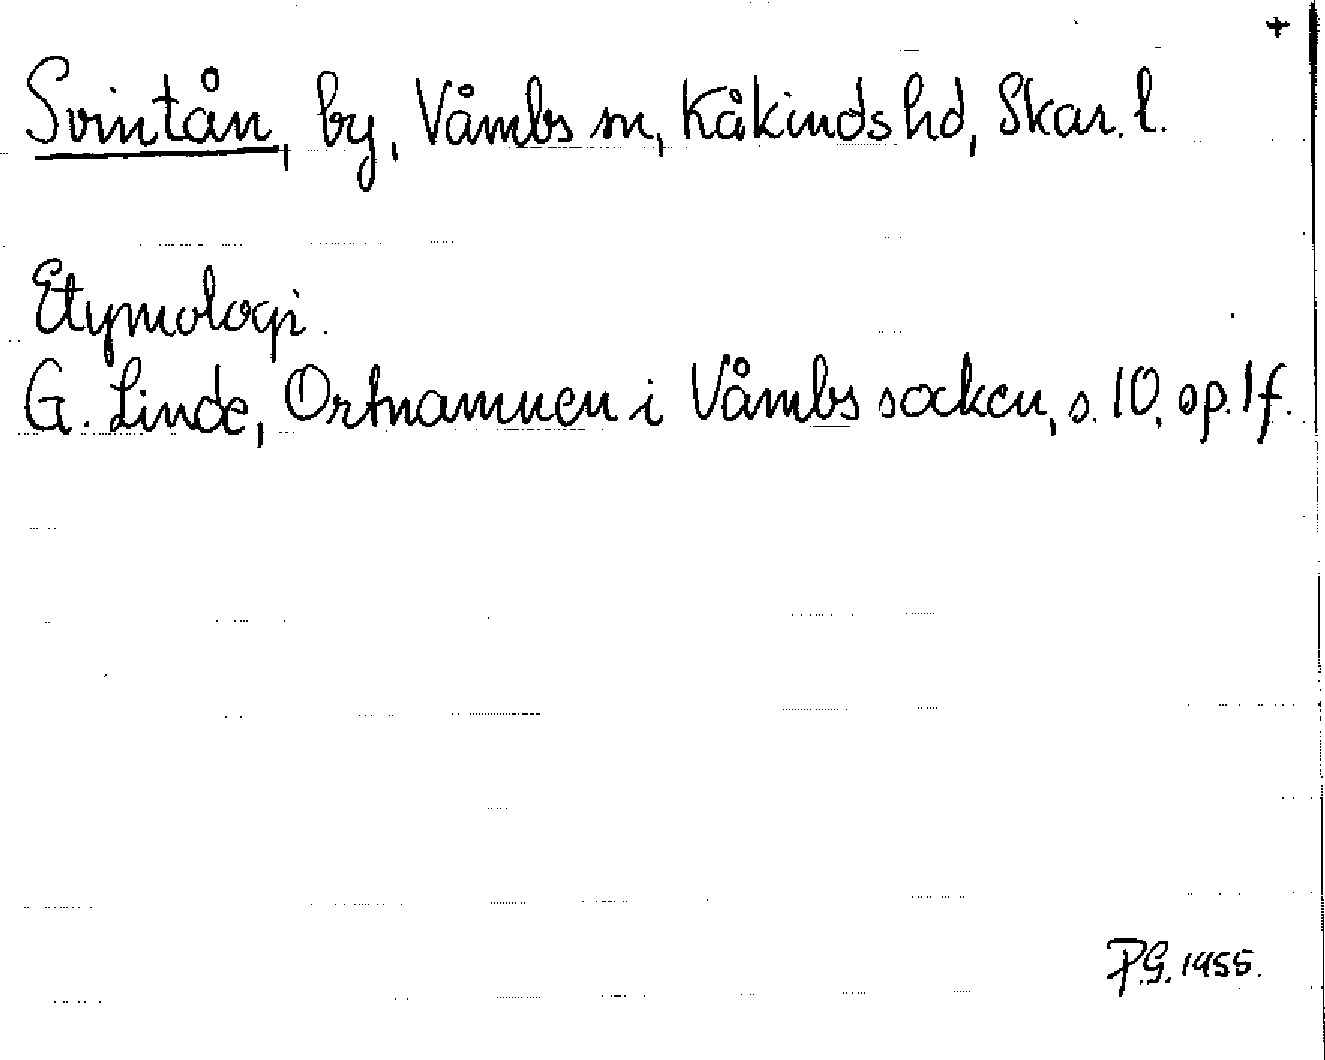 +
Svintån, by, Våmbs sn, Kåkinds hd, Skar. l.
Etymologi.
G. Linde, Ortnamnen i Våmbs socken, s. 10, sp. 1f.
P.G. 1955.